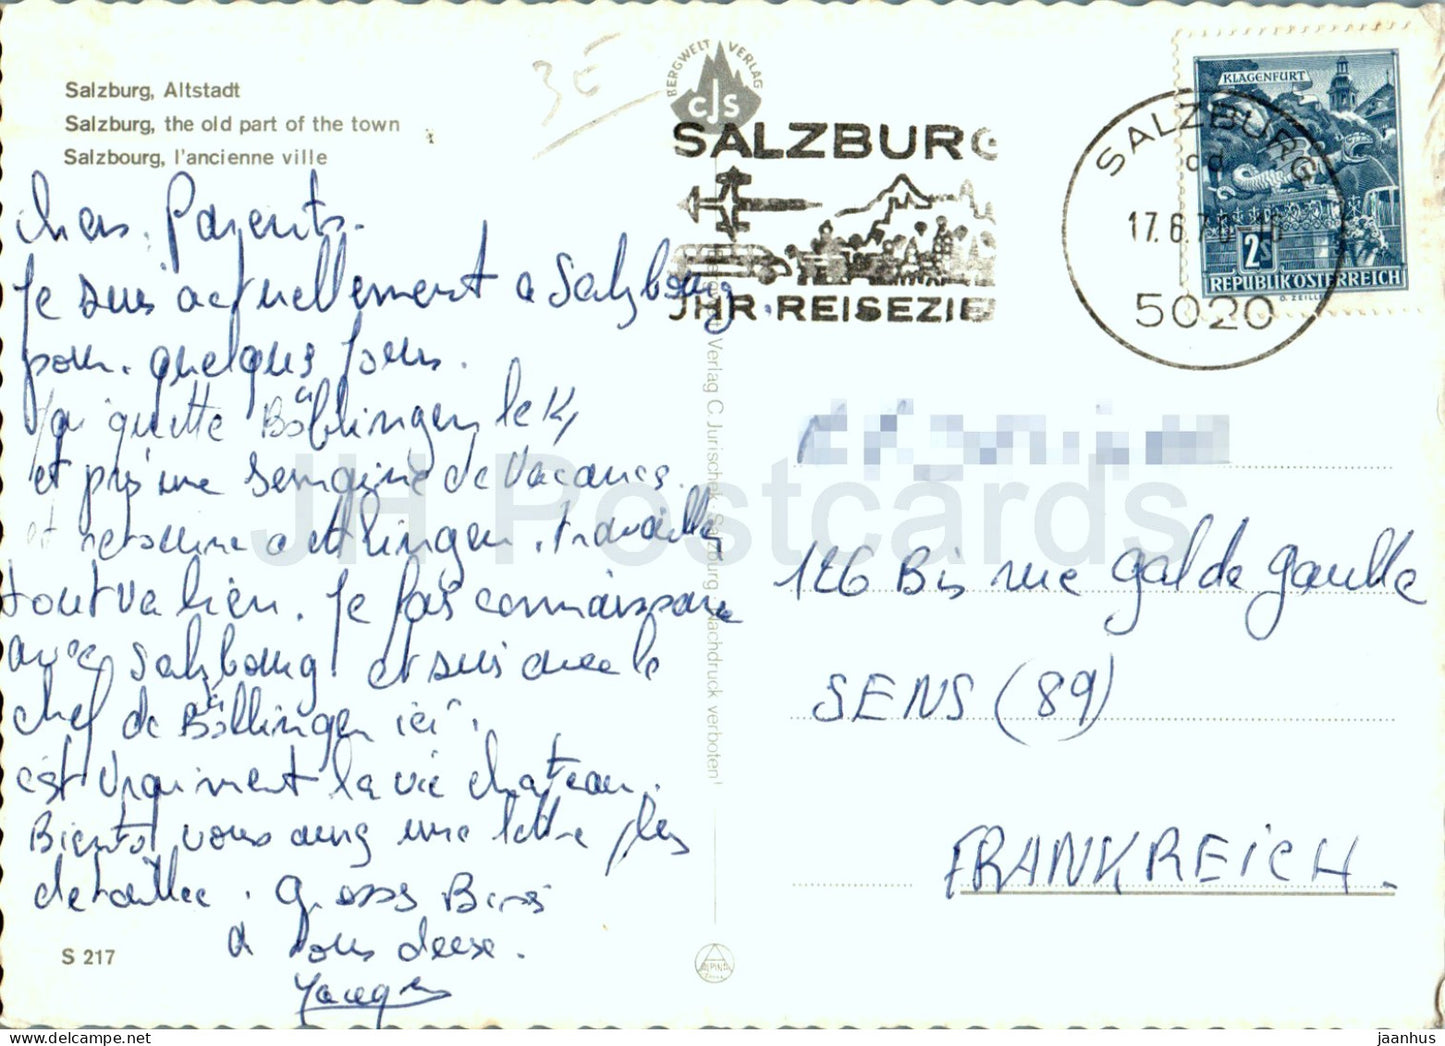 Salzburg, Altstadt
Salzburg, the old part of the town
Salzbourg, l'ancienne ville
3E
BERGWELT VERLAG
CJS
SALZBURG
JHR REISEZIE
SALZBURG
17.6.7
5020
KLAGENFURT
2S
REPUBLIK ÖSTERREICH
O. ZEILL
Chers Parents.
Je suis actuellement a Salzbourg
pour quelques jours.
J'ai quitte Böblingen le 14
et pris une semaine de Vacances.
et retourne a Böblingen travailler
tout va bien. Je fais connaissance
avec Salzbourg et suis avec le
chef de Böblingen ici.
c'est vraiment la vie chateau.
Bientot vous aurez une lettre plus
detaillee. Gross Bises
a tous deux.
Jacques
126 Bis rue Gal de Gaulle
SENS (89)
FRANKREICH.
Verlag C. Jurischek, Salzburg, Nachdruck verboten!
ALPINE
S 217
JH Postcards
https://www.delcampe.net
jaanhus